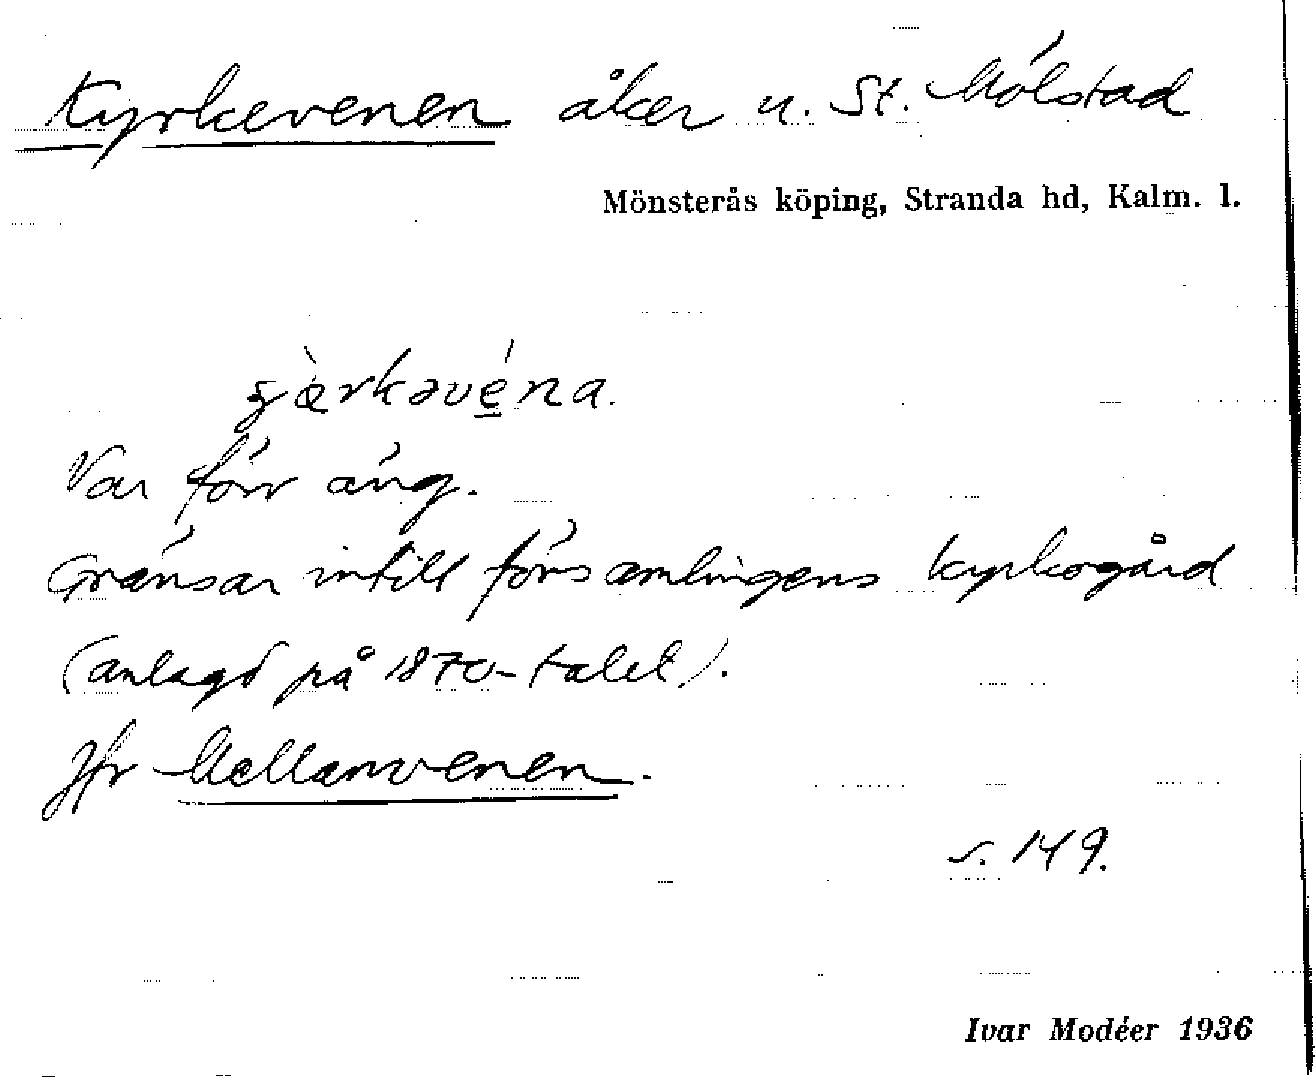 Kyrkevenen åker u. St. Mölstad
Mönsterås köping, Stranda hd, Kalm. l.
Var förr äng.
Gränsar intill församlingens kyrkogård
(anlagd på 1870-talet).
Jfr Mellanvenen.
s. 149.
Ivar Modéer 1936